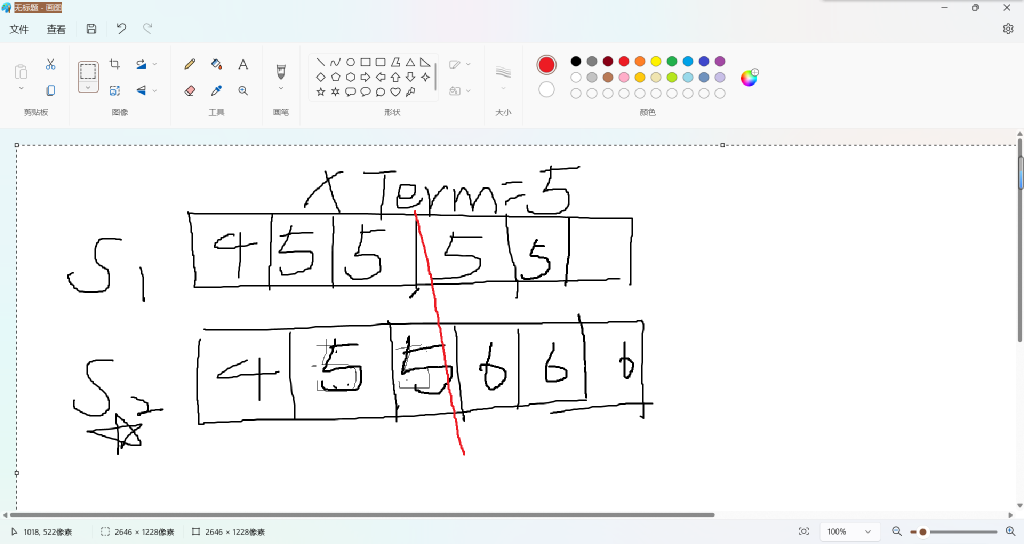 无标题 - 画图
文件 查看
剪贴板 图像 工具 画笔 形状 大小 颜色
X Term=5
S1 4 5 5 5 5
S2 4 5 5 6 6 6
1018, 522像素 2646 × 1228像素 2646 × 1228像素 100%